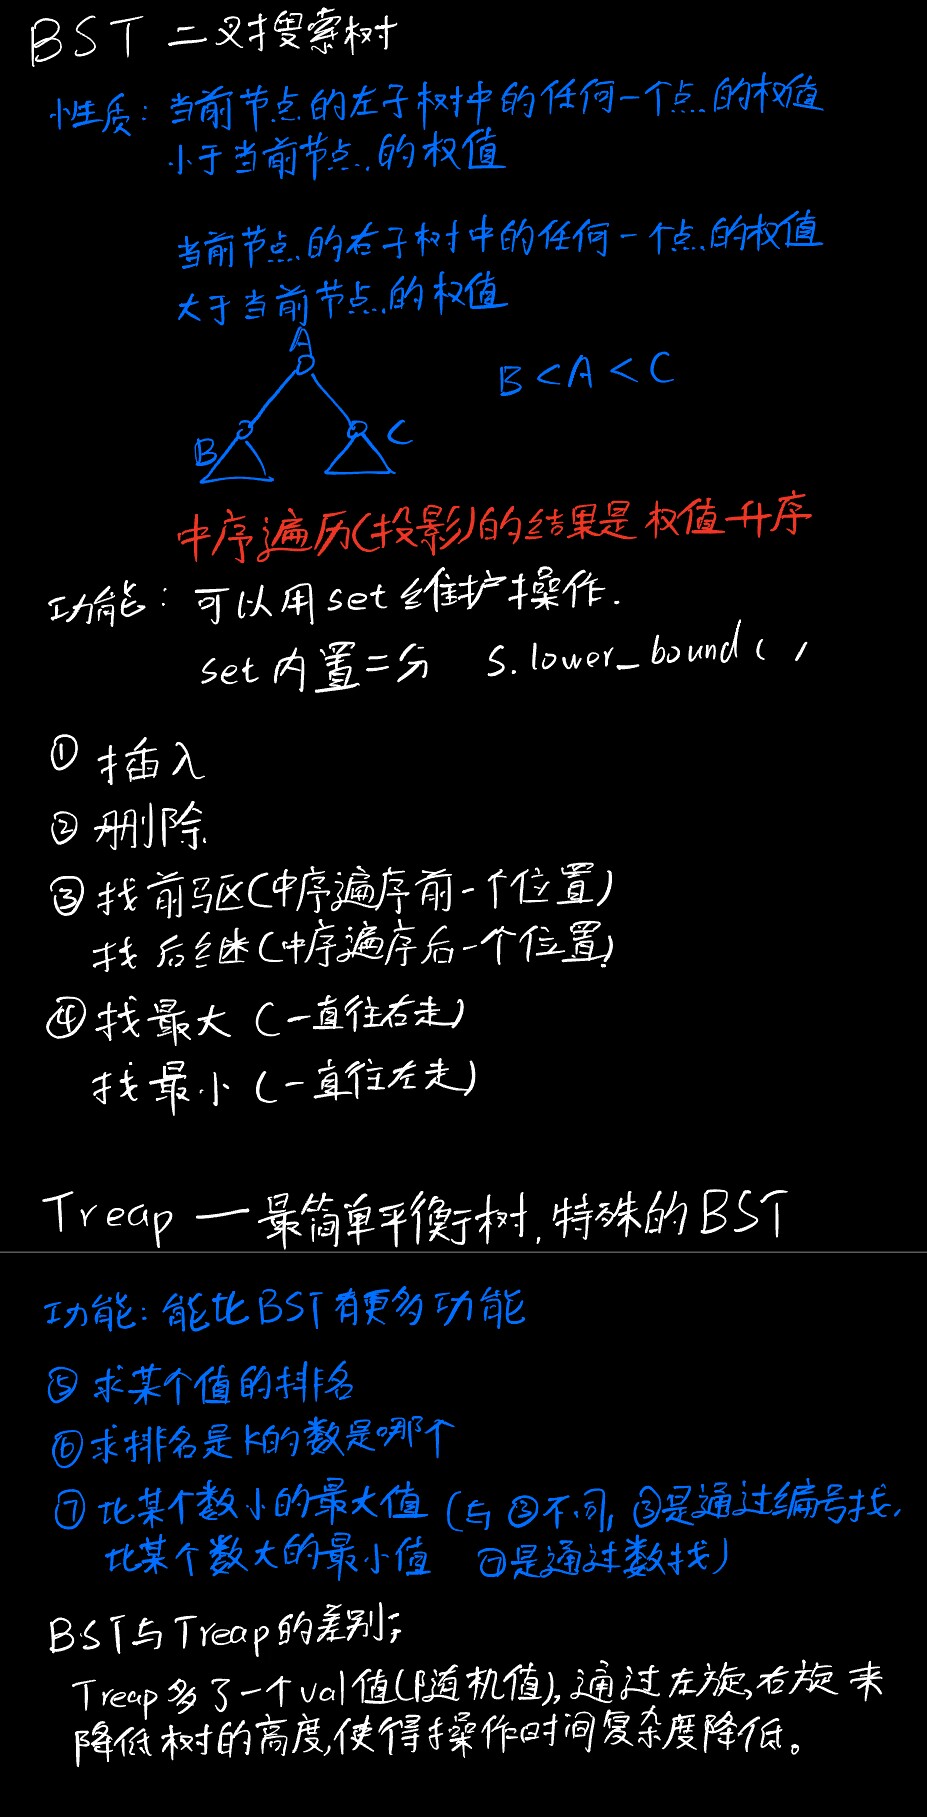 BST 二叉搜索树
性质：当前节点的左子树中的任何一个点的权值
小于当前节点的权值
当前节点的右子树中的任何一个点的权值
大于当前节点的权值
A
B < A < C
B
C
中序遍历(投影)的结果是权值升序
功能：可以用set维护操作.
set内置二分 s.lower_bound( )
① 插入
② 删除
③ 找前驱(中序遍序前一个位置)
找后继(中序遍序后一个位置)
④ 找最大 (一直往右走)
找最小 (一直往左走)
Treap — 最简单平衡树,特殊的BST
功能：能比BST有更多功能
⑤ 求某个值的排名
⑥ 求排名是k的数是哪个
⑦ 比某个数小的最大值 (与③不同,③是通过编号找,
比某个数大的最小值 ⑦是通过数找)
BST与Treap的差别;
Treap多了一个val值(随机值),通过左旋,右旋来
降低树的高度,使得操作时间复杂度降低。